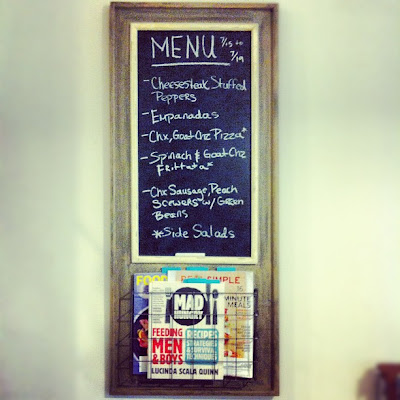 MENU 7/15 to
7/19
- Cheesesteak Stuffed
Peppers
- Empanadas
- Chx, Goat Chz Pizza*
- Spinach & Goat Chz
Frittata*
- Chx Sausage, Peach
Scewers w/ Green
Beans
*Side Salads
FOOD
REAL SIMPLE
MINUTE
MEALS
MAD
HUNGRY
FEEDING
MEN
& BOYS
RECIPES,
STRATEGIES
& SURVIVAL
TECHNIQUES
LUCINDA SCALA QUINN